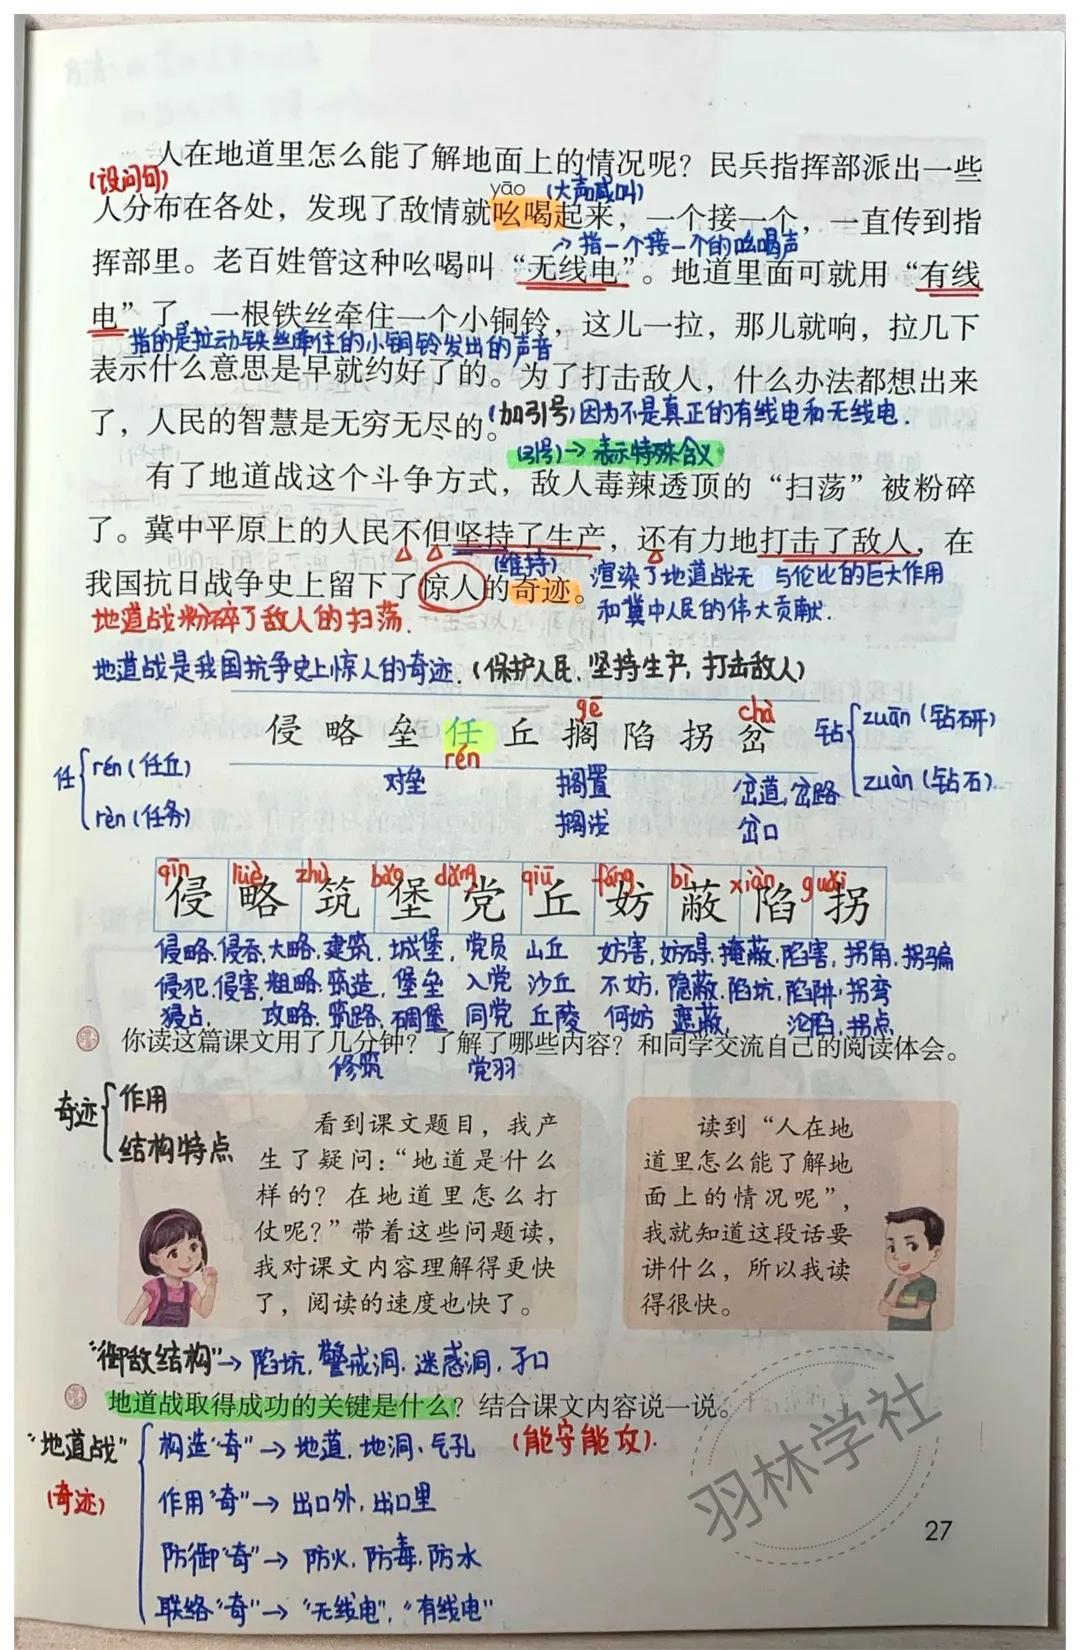 人在地道里怎么能了解地面上的情况呢？民兵指挥部派出一些
(设问句)
yāo
(大声喊叫)
人分布在各处，发现了敌情就吆喝起来，一个接一个，一直传到指
→指一个接一个的吆喝声
挥部里。老百姓管这种吆喝叫“无线电”。地道里面可就用“有线
电”了，一根铁丝牵住一个小铜铃，这儿一拉，那儿就响，拉几下
指的是拉动铁丝牵住的小铜铃发出的声音
表示什么意思是早就约好了的。为了打击敌人，什么办法都想出来
了，人民的智慧是无穷无尽的。
(加引号)因为不是真正的有线电和无线电.
(引号)→表示特殊含义
有了地道战这个斗争方式，敌人毒辣透顶的“扫荡”被粉碎
了。冀中平原上的人民不但坚持了生产，还有力地打击了敌人，在
(维持)
我国抗日战争史上留下了惊人的奇迹。
渲染了地道战无与伦比的巨大作用
和冀中人民的伟大贡献.
地道战粉碎了敌人的扫荡.
地道战是我国抗争史上惊人的奇迹.(保护人民、坚持生产,打击敌人)
gē chà
侵 略 垒 任 丘 搁 陷 拐 岔
rén
钻 zuān (钻研)
zuàn (钻石)
任 rén (任丘)
rèn (任务)
对垒 搁置 岔道,岔路
搁浅 岔口
qīn lüè zhù bǎo dǎng qiū fáng bì xiàn guǎi
侵 略 筑 堡 党 丘 妨 蔽 陷 拐
侵略.侵吞.大略.建筑.城堡, 党员 山丘 妨害,妨碍.掩蔽.陷害,拐角.拐骗
侵犯.侵害.粗略.筑造, 堡垒 入党 沙丘 不妨,隐蔽.陷坑,陷阱.拐弯
侵占. 攻略.筑路.碉堡 同党 丘陵 何妨 遮蔽, 沦陷,拐点
你读这篇课文用了几分钟？了解了哪些内容？和同学交流自己的阅读体会。
修筑 党羽
奇迹 作用
结构特点
看到课文题目，我产
生了疑问：“地道是什么
样的？在地道里怎么打
仗呢？”带着这些问题读，
我对课文内容理解得更快
了，阅读的速度也快了。
读到“人在地
道里怎么能了解地
面上的情况呢”，
我就知道这段话要
讲什么，所以我读
得很快。
“御敌结构”→陷坑,警戒洞.迷惑洞.孑口
地道战取得成功的关键是什么？结合课文内容说一说。
“地道战”
(奇迹)
构造“奇”→地道.地洞.气孔 (能守能攻).
作用“奇”→出口外,出口里
防御“奇”→防火,防毒,防水
联络“奇”→“无线电”,“有线电”
羽林学社
27